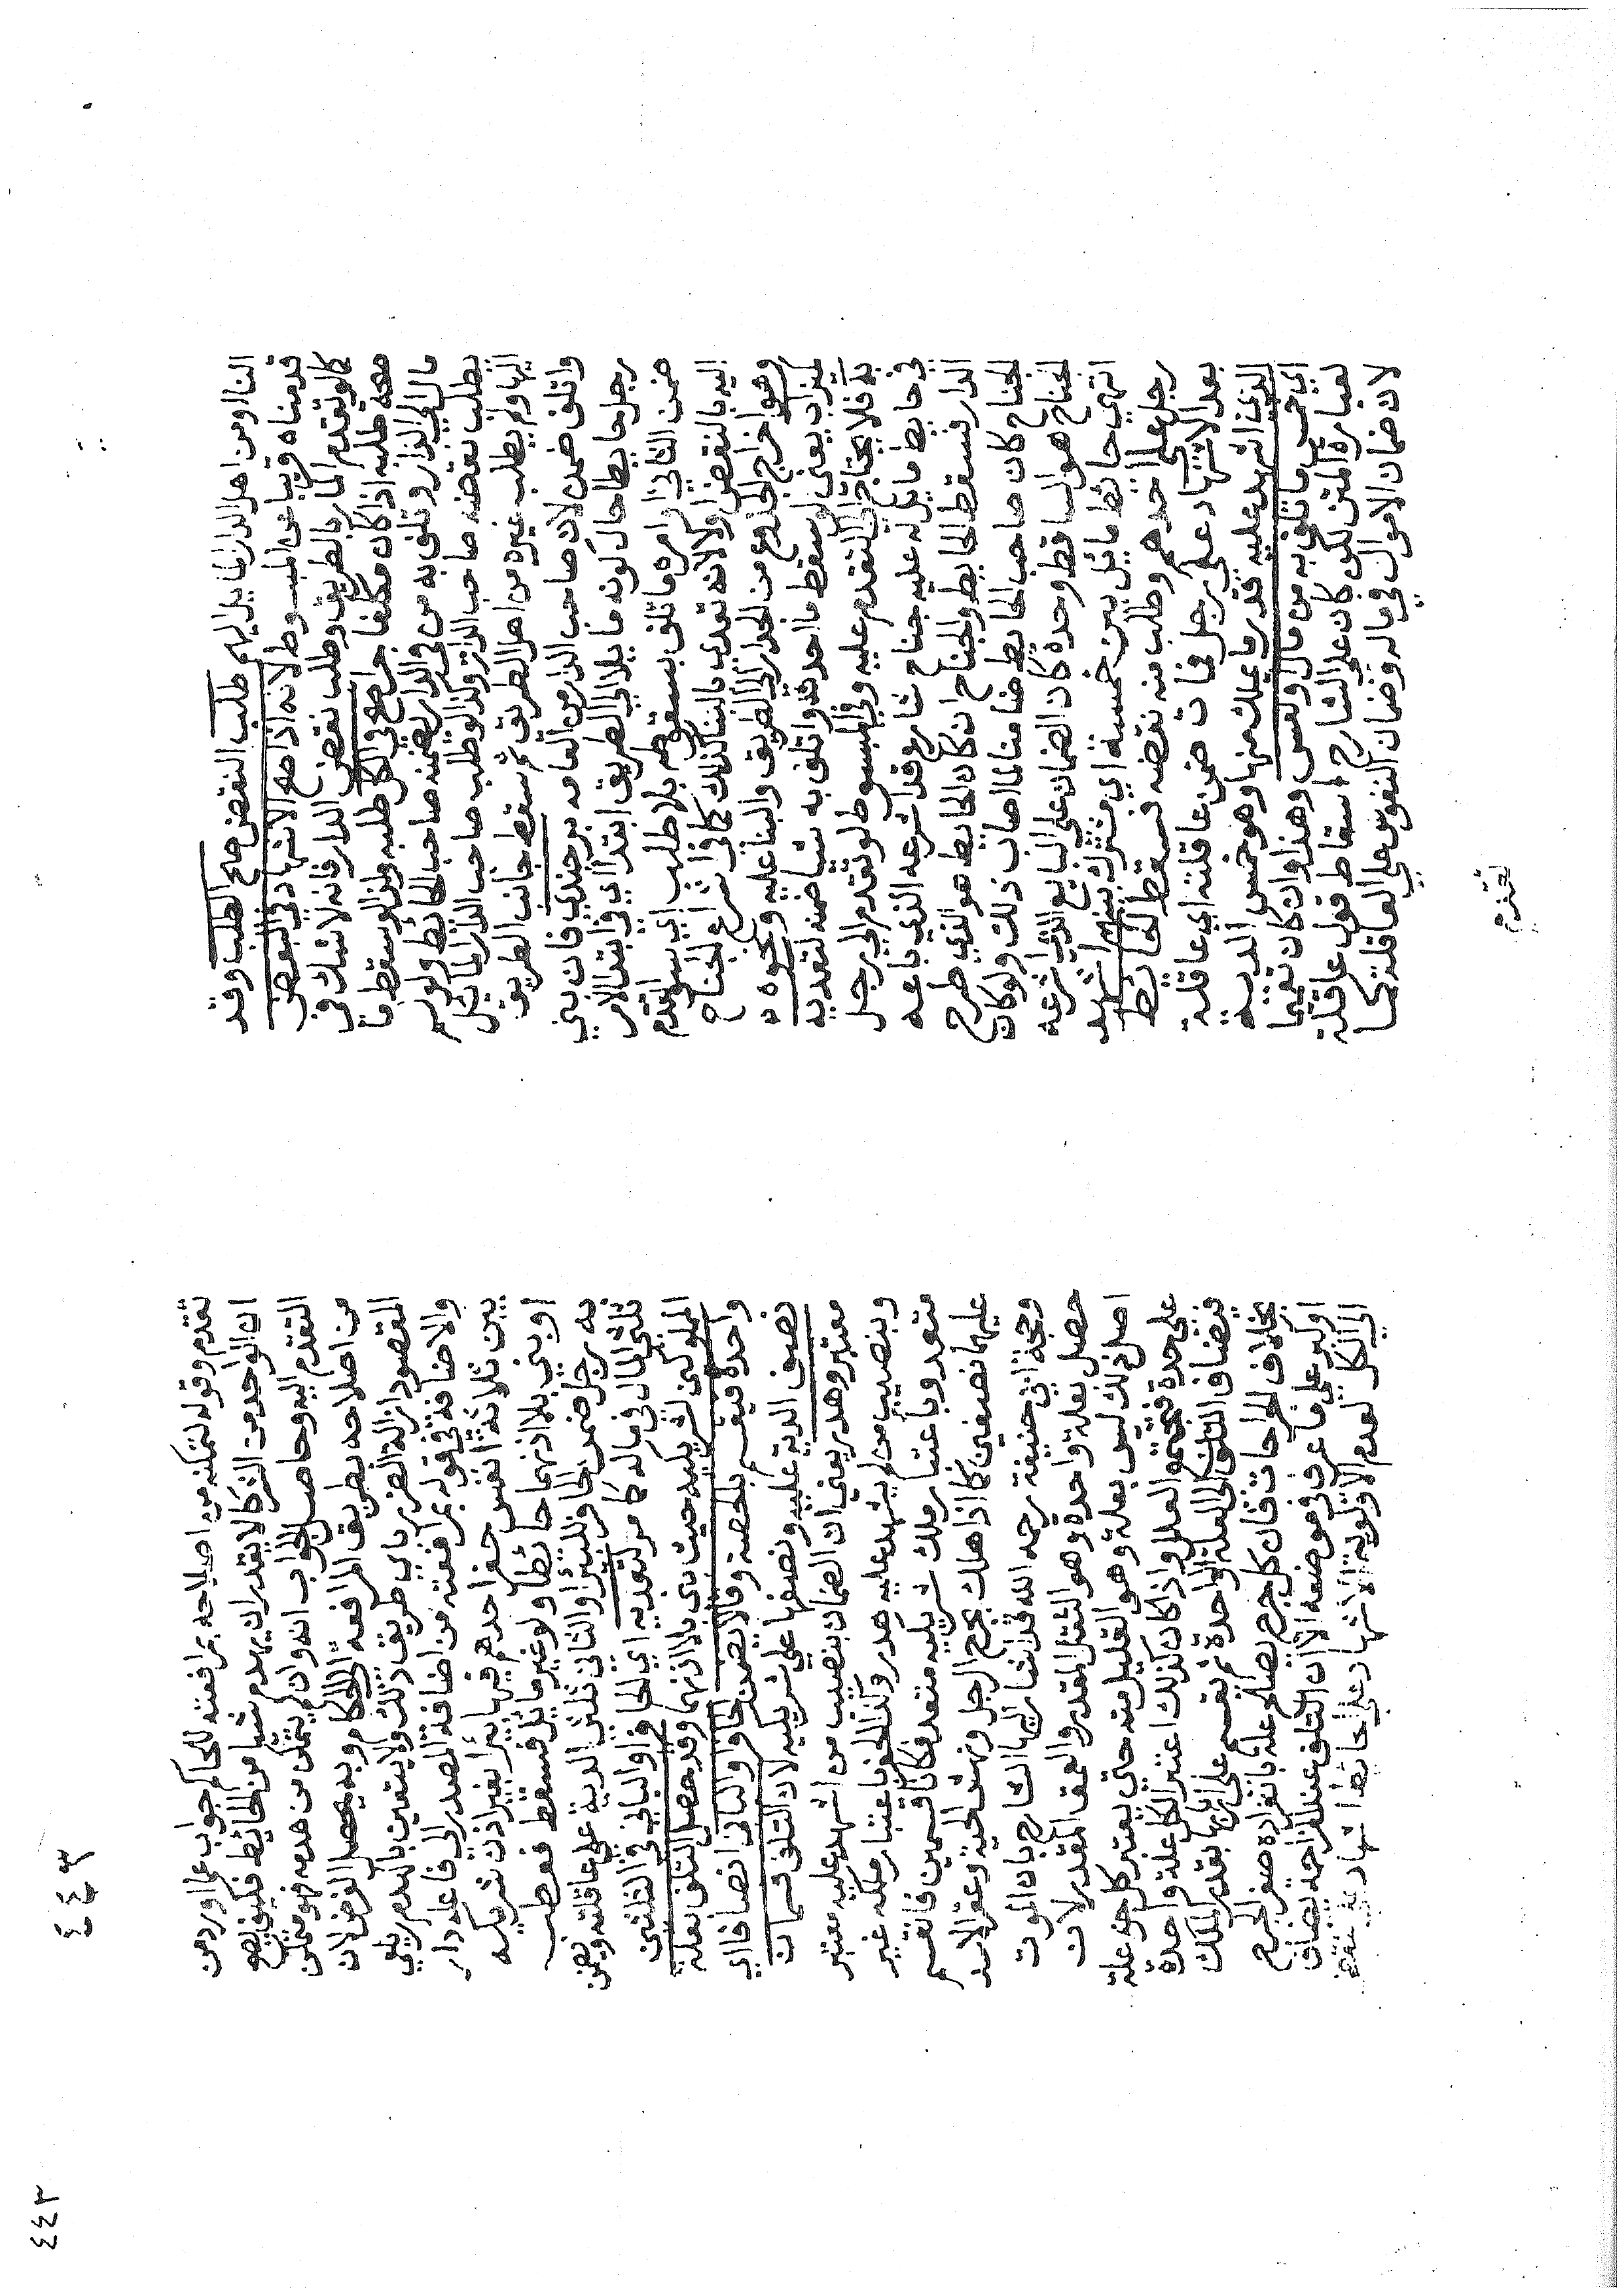 البنا او من اهل الدار لما يل اليهم طلب النقض صح الطلب وقد
قدمناه قريبا عن المبسوط لانه اذا صح الاشهاد في البعض
كما لو تقدم المار بالطريق وطلب نقض الدار فانه لا شك في
صحة طلبه اذا كان مكلفا جرا صح في الكل طلبه ولذا لو سقط ما
مال الي الدار وتلف به من في الدار يضمنه صاحب الحائط ولو لم
يطلب نقضه صاحب الدار وكذا لو طلب صاحب الدار المايل
اليها ولم يطلب غيره من اهل الطريق ثم سقط جانب الطريق
واتلف ضمن لان صاحب الدار من العامه برجندي فان بني
رجل حايطا حال كونه مايلا الي الطريق ابتدا اي في ابتدا الامر
ضمن الثاني اذا مره ما تلف بسقوطه بلا طلب اي سوا تقدم
اليه بالنقض او لا لانه تعدي بالبنا كذلك كما في اشراع الجناح
وهو اخراج الجذوع من الجدار الي الطريق والبنا عليه ونحوه ه
كميزاب يعني لو سقط ما احدثه واتلف به شيا ضمنه لتعديه
به فلا يحتاج الي التقدم عليه وفي المبسوط لو تقدم الي رجل
في حايط مايل له عليه جناح شارع قد اشرعه الذي باعه
الدار فسقط الحايط والجناح ان كان الحايط هو الذي طرح
الجناح كان صاحب الحايط ضامنا لما اصاب ذلك ولو كان
الجناح هو الساقط وحده كان الضمان علي البايع الذي اشرعه
انتهي حائط مائل بين خمسة اي مشترك بينهم اشهد
رجل علي احدهم وطلب منه نقضه فسقط الحائط
بعد الاشهاد علي رجل فمات ضمن عاقلته اي عاقلة
الذي اشهد عليه قدر ما يملك منها وهو خمس الدية
اي خمس ما تلف به من مال او نفس وهذا وان كان تعميما
لعبارة المتن لكن كان علي الشارح اسقاط قول عاقلة
لان ضمان الاموال في ماله وضمان النفوس علي العاقلة كما
تقدم
تقدم وقوله لتمكنه من اصلاحه بمرافعته للحاكم جواب عما ورد من
ان الواحد من الشركا لا يقدر ان يهدم شيا من الحائيط فكيف يصح
التقدم اليه وحاصل الجواب انه وان لم يتمكن من هدمه فهو متمكن
من اصلاحه بطريق المرافعة الي الحكام وبه يحصل الغرض لان
المقصود ازالة الضرر باي طريق ذلك ولا يتعين بالهدم زيلعي
والاضافة في قوله بمرافعته من اضافة المصدر الي فاعله دار
بين ثلاثة انفس حفر احدهم فيها بئرا بغير اذن شريكه
او بني بلا اذنهما حائطا ولو غير مايل فسقط فعطب
به رجل ضمن الحافر للبئر او الثاني ثلثي الدية علي عاقلته ويضمن
ثلثي المال في ماله كما مر لتعديه اي الحافر او الباني في الثلثين
المملوكين لشريكيه حيث بني بلا اذنهما وقد حصل التلف بعلة
واحدة فيقسم بالحصة وقالا يضمن الحافر والباني انصافا اي
نصف الدية عليه ونصفها علي شريكيه لان التلف قسمان
معتبر وهدر يعني ان الضمان بنصيب من اشهد عليه معتبر
وبنصيب من لم يشهد عليه هدر وكذا الحفر باعتبار ملكه غير
متعد وباعتبار ملك شريكيه متعد فكانا قسمين فانقسم
عليهما نصفين كما اذا هلك بجرح الرجل ونهش الحية وعقر الاسد
وحجة ابي حنيفة رحمه الله قد اشار اليها الشارح بان الموت
حصل بعلة واحدة وهو الثقل المقدر والعمق المقدر لان
اصل ذلك ليس بعلة وهو القليل منه حتي يعتبر كل جزء علة
علي حدة فيجتمع العلل واذا كان كذلك اعتبر الكل علة واحدة
فيضاف التلف الي العلة الواحدة ثم تقسم علي اربابها بقدر الملك
بخلاف الجراحات فان كل جرح يصلح علة بانفراده صغر الجرح
او كبر علي ما عرف في موضعه الا ان التلف عند المزاحمة يضاف
الي الكل لعدم الاولوية الاشهاد علي حائط اشهاد علي نقضه
٤٤٣
٤٤٣